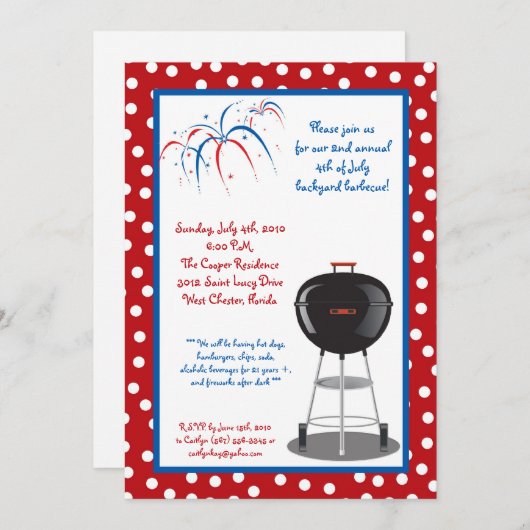 Please join us
for our 2nd annual
4th of July
backyard barbecue!
Sunday, July 4th, 2010
6:00 P.M.
The Cooper Residence
3012 Saint Lucy Drive
West Chester, Florida
*** We will be having hot dogs,
hamburgers, chips, soda,
alcoholic beverages for 21 years +,
and fireworks after dark ***
R.S.V.P. by June 18th, 2010
to Caitlyn (567) 556-3345 or
caitlynkay@yahoo.com